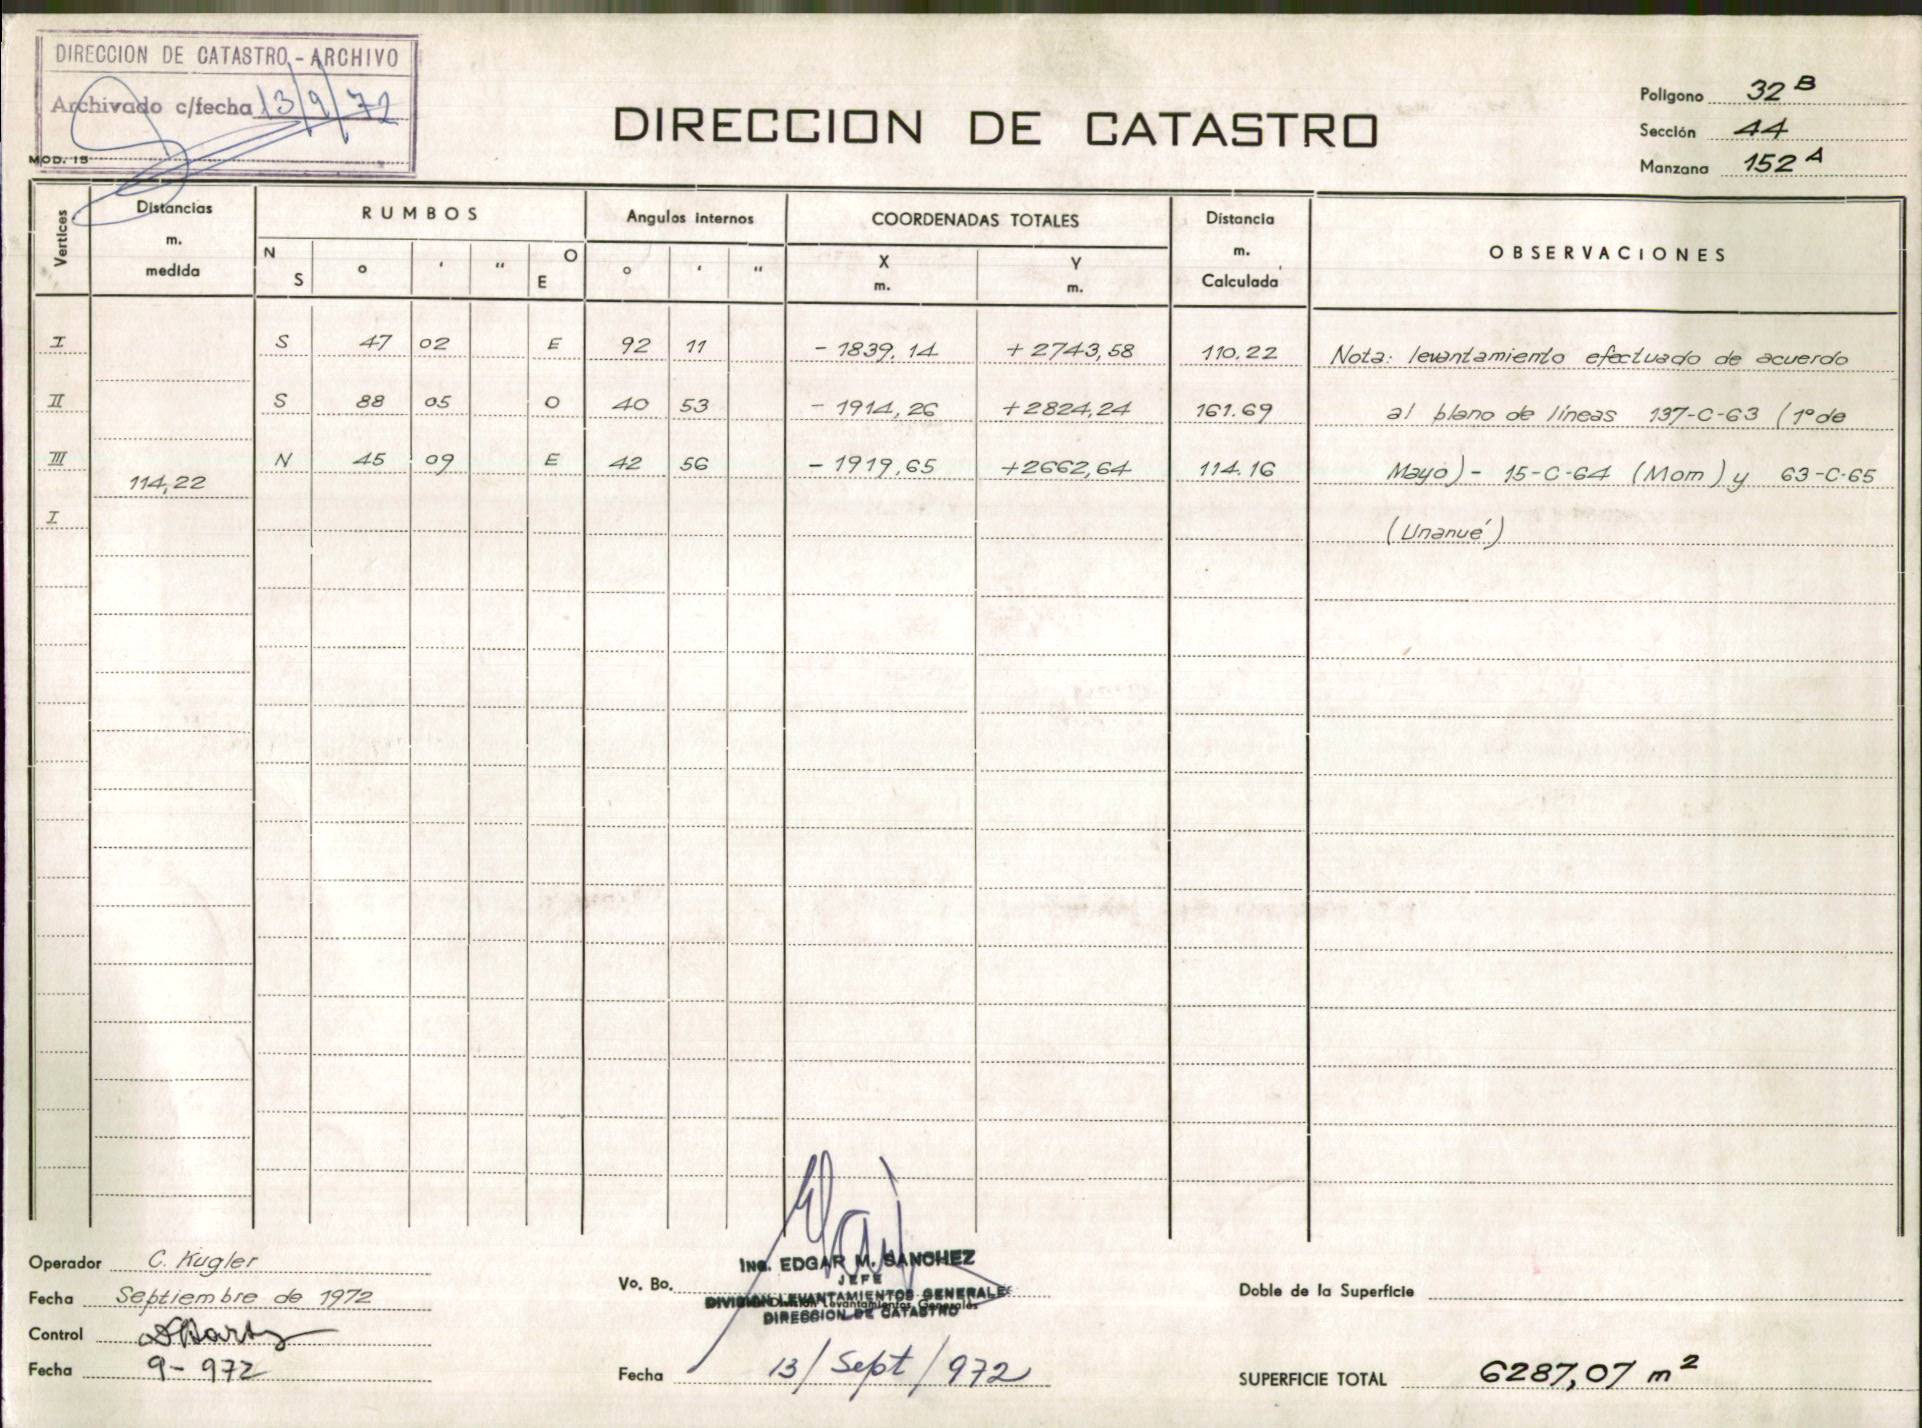 DIRECCION DE CATASTRO - ARCHIVO
Archivado c/fecha 13/9/72
MOD. 15
DIRECCION DE CATASTRO
Polígono 32 B
Sección 44
Manzana 152 A
Vertices
Distancias m. medida
RUMBOS
N S ° ' " O E
Angulos internos
° ' "
COORDENADAS TOTALES
X m. Y m.
Distancia m. Calculada
OBSERVACIONES
I S 47 02 E 92 11 - 1839.14 + 2743,58 110.22 Nota: levantamiento efectuado de acuerdo
II S 88 05 O 40 53 - 1914,26 +2824,24 161.69 al plano de líneas 137-C-63 (1º de
III N 45 09 E 42 56 - 1919,65 +2662,64 114.16 Mayo) - 15-C-64 (Mom) y 63-C-65
114,22
I (Unanué)
Operador C. Kugler
Fecha Septiembre de 1972
Control
Fecha 9-972
Vo. Bo.
Ing. EDGAR M. SANCHEZ
JEFE
DIVISION LEVANTAMIENTOS GENERALES
División Levantamientos Generales
DIRECCION DE CATASTRO
Fecha 13/Sept/972
Doble de la Superficie
SUPERFICIE TOTAL 6287,07 m²